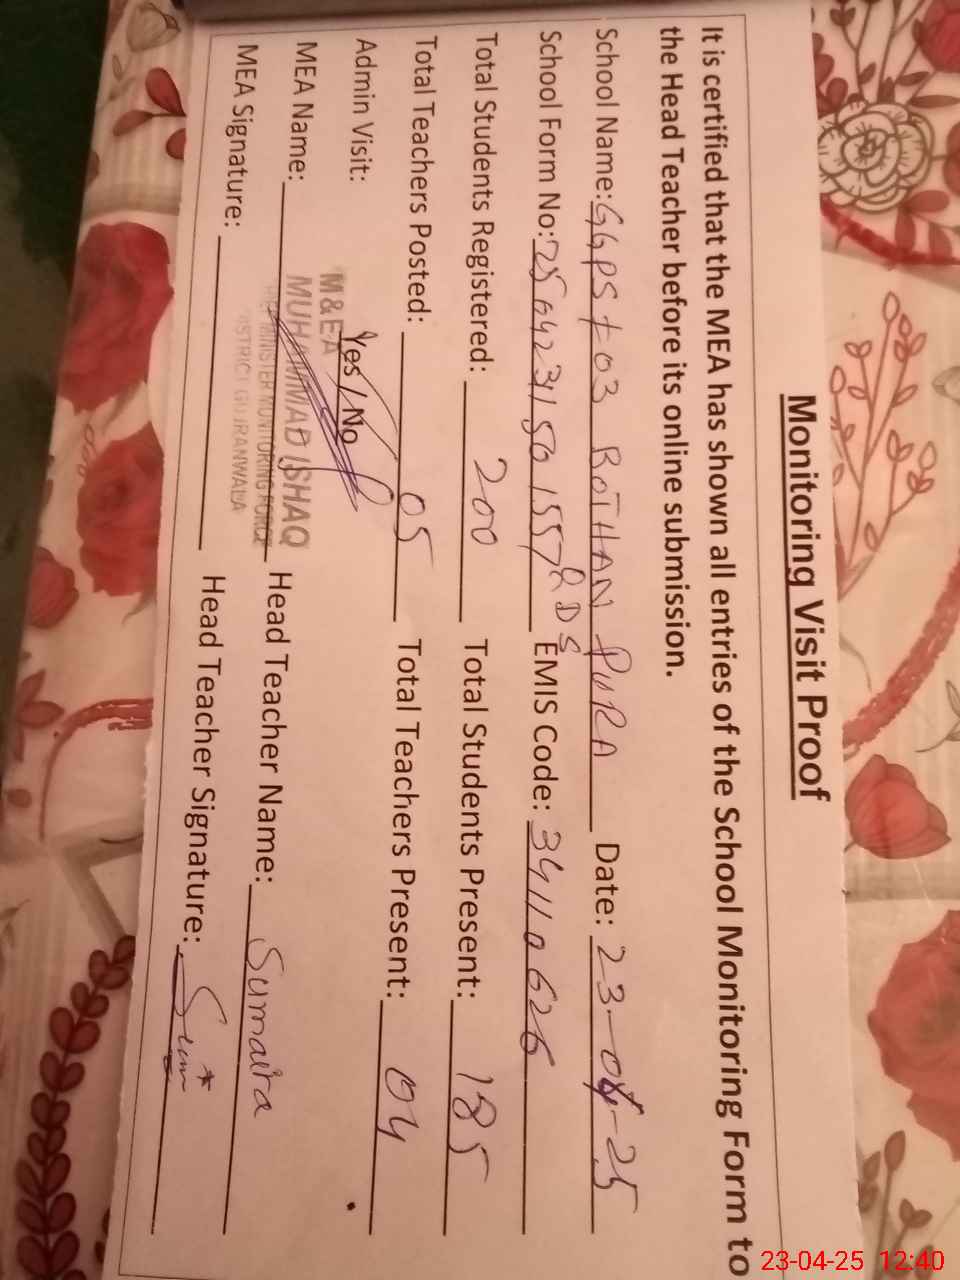 Monitoring Visit Proof
It is certified that the MEA has shown all entries of the School Monitoring Form to
the Head Teacher before its online submission.
School Name: GGPS # 03 BOTHAN PURA Date: 23-04-25
School Form No: EMIS Code: 34110626
RDS
Total Students Registered: 200 Total Students Present: 185
Total Teachers Posted: 05 Total Teachers Present: 04
Admin Visit: Yes / No
M&EA
MEA Name: MUHAMMAD ISHAQ Head Teacher Name: Sumaira
MINISTER MONITORING FORCE
DISTRICT GUJRANWALA
MEA Signature: Head Teacher Signature: Sum
23-04-25 12:40